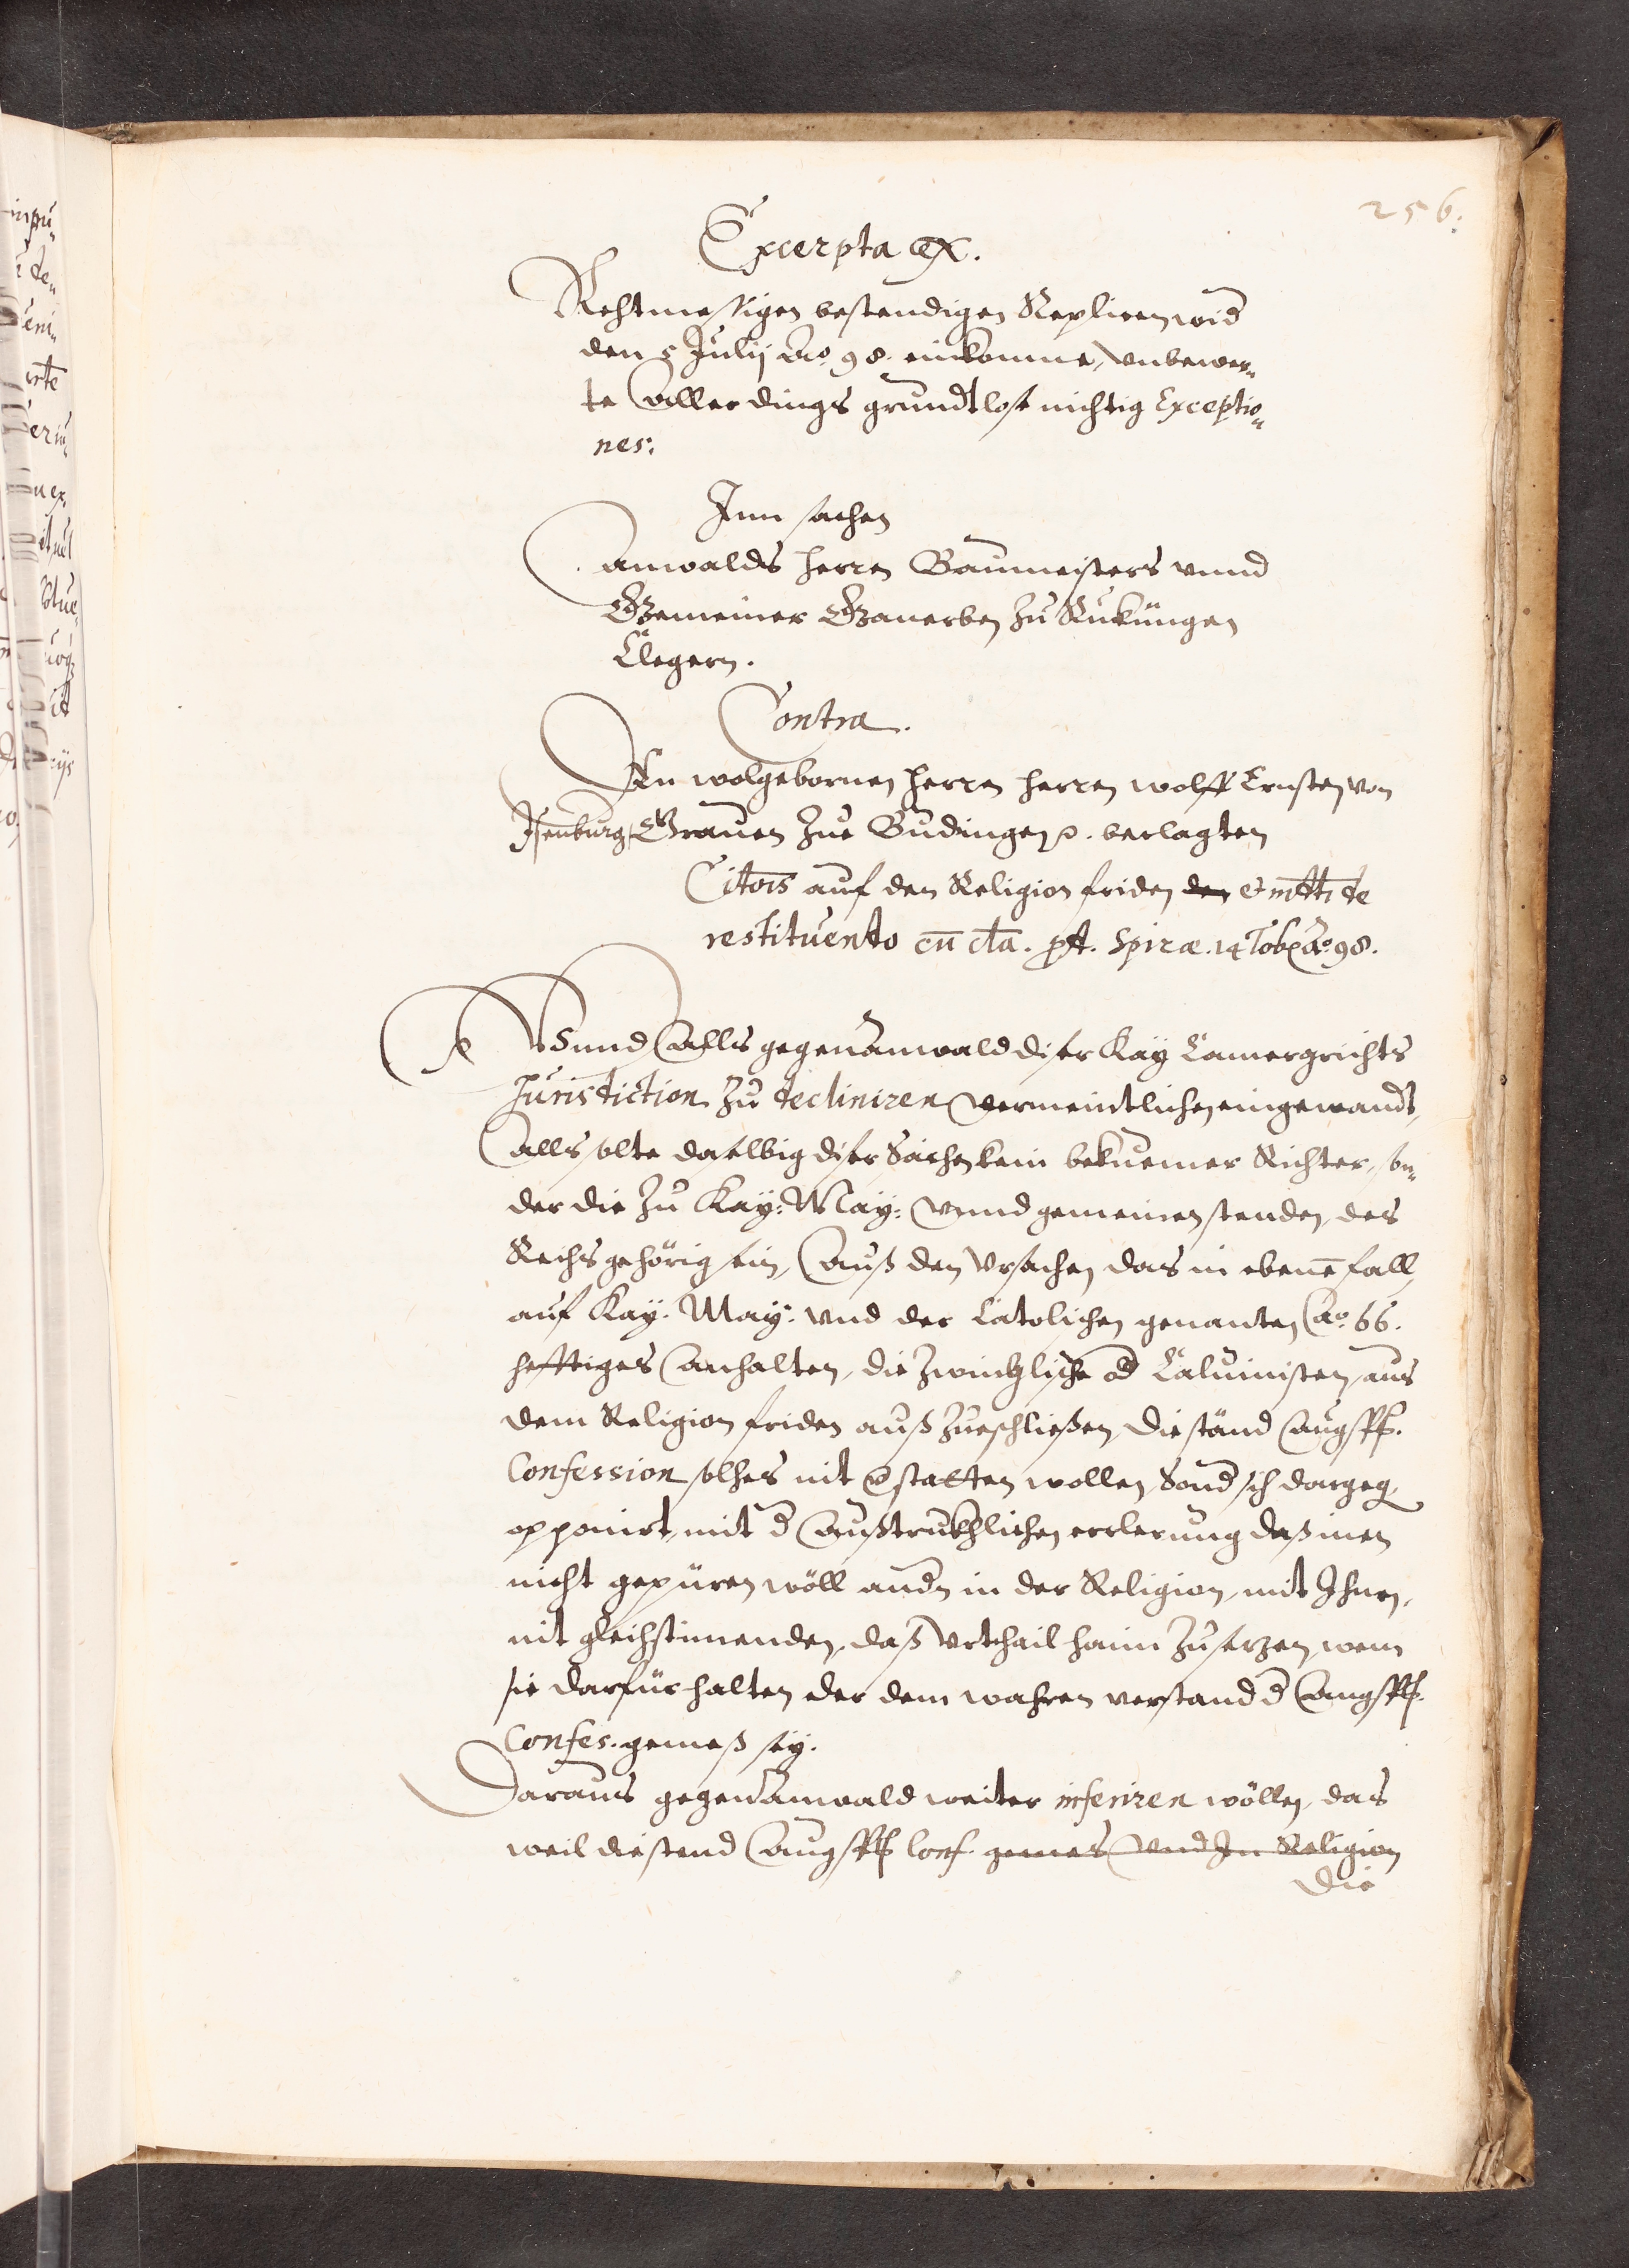 256.
Excerpta ex.
Rechtmessigen bestendigen Replicen wid
den 5 Julij Ao. 98. einkomme, vnbewer„
te aller dings grundtlose nichtig Exceptio„
nes.
Inn sachen
anwalds Herren Baumeisters vnnd
Gemeiner Ganerben zu Ruküngen
Clegern.
Contra.
Den wolgebornen Herren Herren Wolff Ernsten von
Isenburg, Grauen zue Budingen. beclagten
Citois auf den Religion friden den & mtti de
restituendo cũ cla. pt. Spiræ. 14 Ao. 98.
Vnnd alls gegenanwald diser Kay Camergrichts
Jurisdiction zu decliniren vermeintlichen eingewandt,
alls solte daselbig diser Sachen kein bekuemer Richter, son„
der die zu Kay: May: vnnd gemeinen stenden, des
Reichs gehörig sein, auß den vrsachen das in ebene fall
auf Kay. May: vnd der Catolichen genanten Ao. 66.
hefftiges anhalten, die Zwinglische od Caluinisten, aus
dem Religion friden auß zueschließen, die ständ Augsp.
Confession solches nit gstatten wollen, Sond sich dargeg
opponirt, mit d außtrukhlichen erclerung daß inen
nicht gepüren wöll andn in der Religion, mit Ihnen,
nit gleichstimenden, daß vrthail haim zusezen, wem
sie darfür halten der dem wahren verstand d Augsp.
Confes. gemeß sey.
Daraus gegenanwald weiter inferiren wöllen, das
weil die stend Augsp Conf. gemes vnd In Religion
die